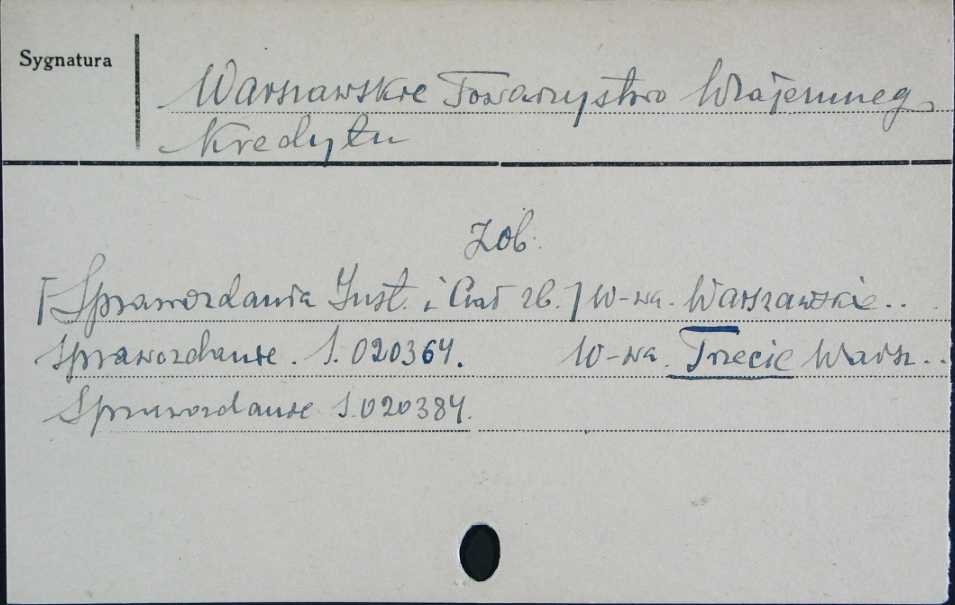 Sygnatura
Warszawskie Towarzystwo Wzajemnego
Kredytu
Zob.
[Sprawozdania Inst. i Ciał zb.] W-wa. Warszawskie..
Sprawozdanie. S.020364. W-wa. Trzecie Warsz...
Sprawozdanie S.020384.